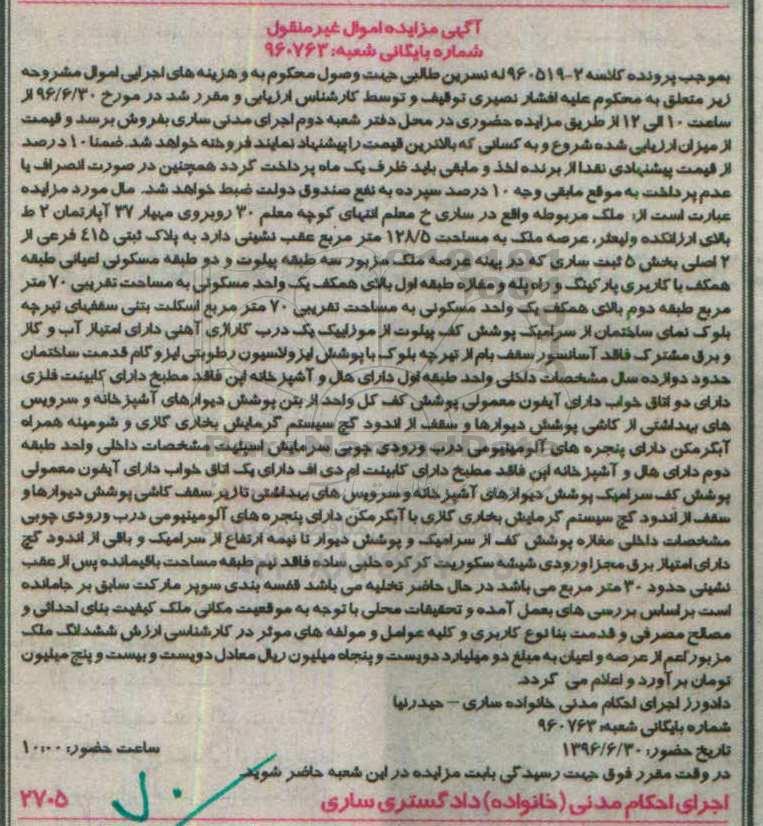 آگهی مزایده اموال غیر منقول
شماره بایگانی شعبه: ۹۶۰۷۶۳
بموجب پرونده کلاسه ۲-۹۶۰۵۱۹ له نسرین طالبی جهت وصول محکوم به و هزینه های اجرایی اموال مشروحه
زیر متعلق به محکوم علیه افشار نصیری توقیف و توسط کارشناس ارزیابی و مقرر شد در مورخ ۹۶/۶/۳۰ از
ساعت ۱۰ الی ۱۲ از طریق مزایده حضوری در محل دفتر شعبه دوم اجرای مدنی ساری بفروش برسد و قیمت
از میزان ارزیابی شده شروع و به کسانی که بالاترین قیمت را پیشنهاد نمایند فروخته خواهد شد. ضمنا ۱۰ درصد
از قیمت پیشنهادی نقدا از برنده اخذ و مابقی باید ظرف یک ماه پرداخت گردد همچنین در صورت انصراف یا
عدم پرداخت به موقع مابقی وجه ۱۰ درصد سپرده به نفع صندوق دولت ضبط خواهد شد. مال مورد مزایده
عبارت است از: ملک مربوطه واقع در ساری خ معلم انتهای کوچه معلم ۳۰ روبروی مهیار ۳۷ آپارتمان ۲ ط
بالای ارزانکده ولیعثر، عرصه ملک به مساحت ۱۲۸/۵ متر مربع عقب نشینی دارد به پلاک ثبتی ۴۱۵ فرعی از
۲ اصلی بخش ۵ ثبت ساری که در پهنه عرصه ملک مزبور سه طبقه پیلوت و دو طبقه مسکونی اعیانی طبقه
همکف با کاربری پارکینگ و راه پله و مغازه طبقه اول بالای همکف یک واحد مسکونی به مساحت تقریبی ۷۰ متر
مربع طبقه دوم بالای همکف یک واحد مسکونی به مساحت تقریبی ۷۰ متر مربع اسکلت بتنی سقفهای تیرچه
بلوک نمای ساختمان از سرامیک پوشش کف پیلوت از موزاییک یک درب کاراژی آهنی دارای امتیاز آب و گاز
و برق مشترک فاقد آسانسور سقف بام از تیرچه بلوک با پوشش ایزولاسیون رطوبتی ایزوگام قدمت ساختمان
حدود دوازده سال مشخصات داخلی واحد طبقه اول دارای هال و آشپزخانه اپن فاقد مطبخ دارای کابینت فلزی
دارای دو اتاق خواب دارای آیفون معمولی پوشش کف کل واحد از بتن پوشش دیوارهای آشپزخانه و سرویس
های بهداشتی از کاشی پوشش دیوارها و سقف از اندود گچ سیستم گرمایش بخاری گازی و شومینه همراه
آبگرمکن دارای پنجره های آلومینیومی درب ورودی چوبی سرمایش اسپلیت مشخصات داخلی واحد طبقه
دوم دارای هال و آشپزخانه اپن فاقد مطبخ دارای کابینت ام دی اف دارای یک اتاق خواب دارای آیفون معمولی
پوشش کف سرامیک پوشش دیوارهای آشپزخانه و سرویس های بهداشتی تا زیر سقف کاشی پوشش دیوارها و
سقف از اندود گچ سیستم گرمایش بخاری گازی با آبگرمکن دارای پنجره های آلومینیومی درب ورودی چوبی
مشخصات داخلی مغازه پوشش کف از سرامیک و پوشش دیوار تا نیمه ارتفاع از سرامیک و باقی از اندود گچ
دارای امتیاز برق مجزا ورودی شیشه سکوریت کرکره حلبی ساده فاقد نیم طبقه مساحت باقیمانده پس از عقب
نشینی حدود ۳۰ متر مربع می باشد در حال حاضر تخلیه می باشد قفسه بندی سوپر مارکت سابق بر جامانده
است براساس بررسی های بعمل آمده و تحقیقات محلی با توجه به موقعیت مکانی ملک کیفیت بنای احداثی و
مصالح مصرفی و قدمت بنا نوع کاربری و کلیه عوامل و مولفه های موثر در کارشناسی ارزش ششدانگ ملک
مزبور اعم از عرصه و اعیان به مبلغ دو میلیارد دویست و پنجاه میلیون ریال معادل دویست و بیست و پنج میلیون
تومان برآورد و اعلام می گردد.
دادورز اجرای احکام مدنی خانواده ساری – حیدرنیا
شماره بایگانی شعبه: ۹۶۰۷۶۳
تاریخ حضور: ۱۳۹۶/۶/۳۰ ساعت حضور: ۱۰:۰۰
در وقت مقرر فوق جهت رسیدگی بابت مزایده در این شعبه حاضر شوید
اجرای احکام مدنی (خانواده) دادگستری ساری ۲۷۰۵